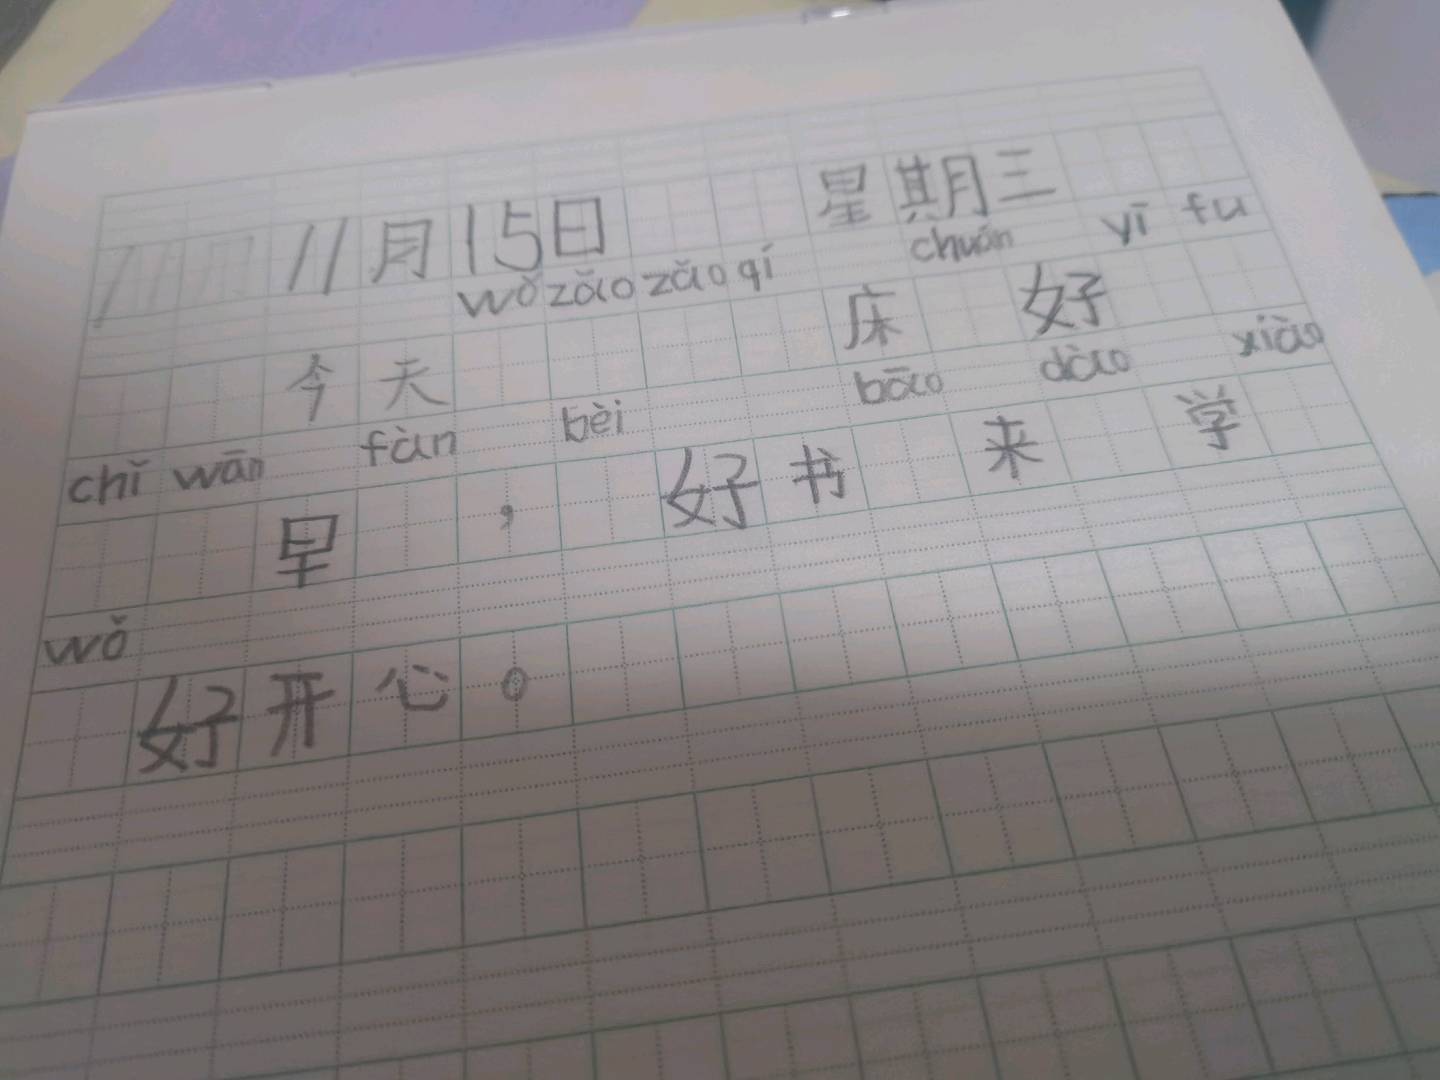 11月15日 星期三
wǒ zǎo zǎo qí chuán yī fu
今天 床 好
chǐ wān fàn bèi bāo dào xiào
早 , 好书 来 学
wǒ
好开心。